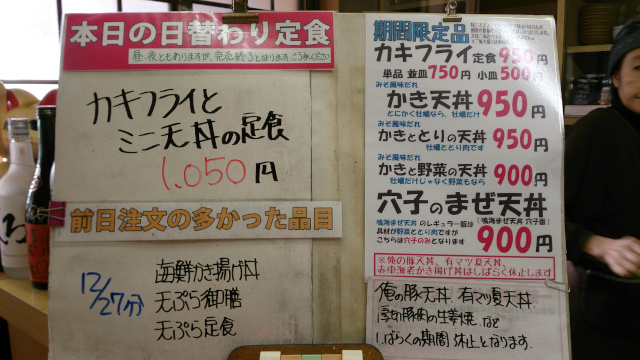 本日の日替わり定食
カキフライと
ミニ天丼の定食
1,050円
前日注文の多かった品目
12/27分
海鮮かき揚げ丼
天ぷら御膳
天ぷら定食
期間限定品
カキフライ定食 950円
単品 並皿750円 小皿500円
みそ風味だれ
かき天丼 950円
とにかく牡蠣なら、牡蠣だけ
みそ風味だれ
かきととりの天丼 950円
牡蠣ととり肉です
みそ風味だれ
かきと野菜の天丼 900円
牡蠣だけじゃなく野菜もなら
穴子のまぜ天丼
鳴海まぜ天丼 のレギュラー版は
具材が野菜ととり肉ですが
こちらは穴子のみとなります
(鳴海まぜ天丼 穴子版)
900円
※俺の豚天丼、有マツ夏天丼、
赤車海老かき揚げ丼はしばらく休止します
俺の豚天丼 有マツ夏天丼、
厚切豚肉の生姜焼 など
しばらくの期間 休止となります。